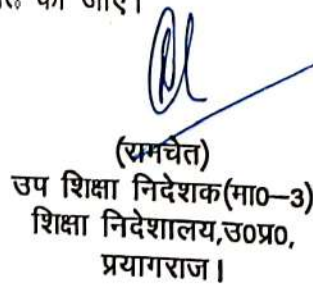 की जाए।
(रामचेत)
उप शिक्षा निदेशक(मा0–3)
शिक्षा निदेशालय,उ0प्र0,
प्रयागराज।